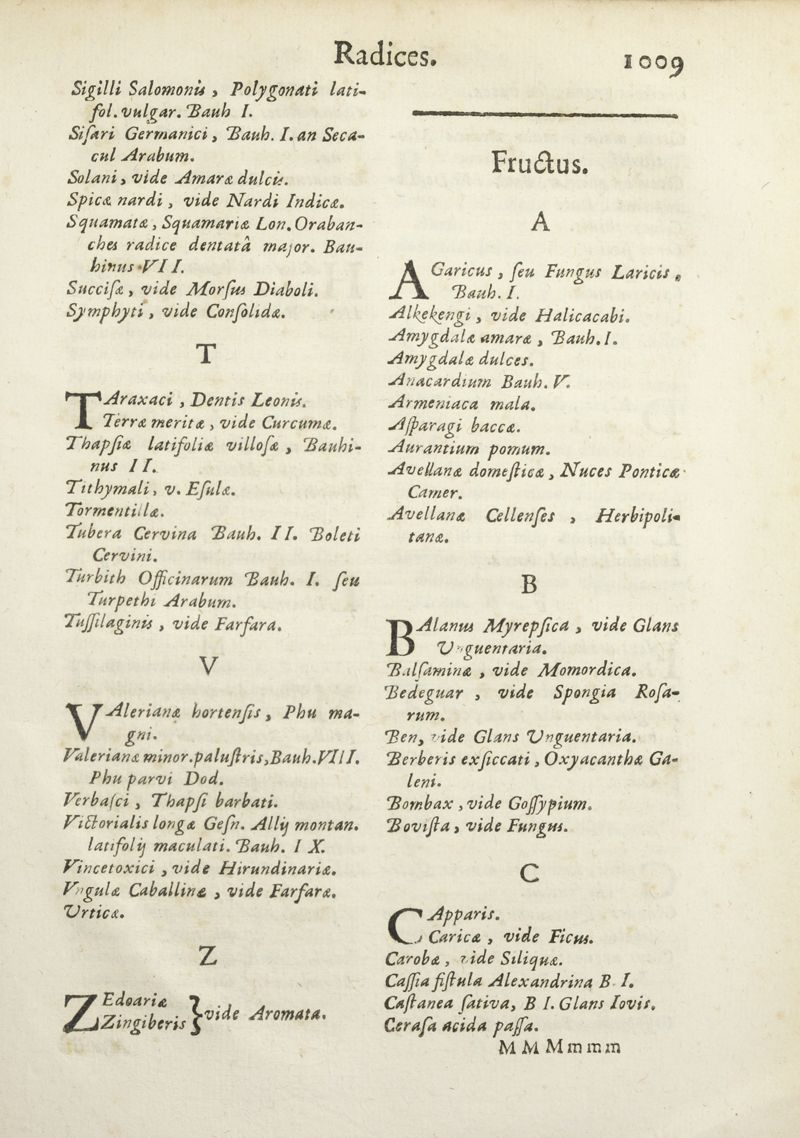 Radices. 1009
Sigilli Salomonis, Polygonati lati-
fol. vulgar. Bauh I.
Siſari Germanici, Bauh. I. an Seca-
cul Arabum.
Solani, vide Amaræ dulcis.
Spicæ nardi, vide Nardi Indicæ.
Squamatæ, Squamariæ Lon. Oraban-
ches radice dentatâ major. Bau-
hinus VII.
Succiſæ, vide Morſus Diaboli.
Symphyti, vide Conſolidæ.
T
TAraxaci, Dentis Leonis.
Terræ meritæ, vide Curcumæ.
Thapſiæ latifoliæ villoſæ, Bauhi-
nus II.
Tithymali, v. Eſulæ.
Tormentillæ.
Tubera Cervina Bauh. II. Boleti
Cervini.
Turbith Officinarum Bauh. I. ſeu
Turpethi Arabum.
Tuſſilaginis, vide Farfara.
V
VAlerianæ hortenſis, Phu ma-
gni.
Valerianæ minor. paluſtris, Bauh. VIII.
Phu parvi Dod.
Verbaſci, Thapſi barbati.
Victorialis longæ Geſn. Allij montan.
latifolij maculati. Bauh. IX.
Vincetoxici, vide Hirundinariæ.
Vngulæ Caballinæ, vide Farfaræ.
Urticæ.
Z
ZEdoariæ
Zingiberis } vide Aromata.
Fructus.
A
AGaricus, ſeu Fungus Laricis,
Bauh. I.
Alkekengi, vide Halicacabi.
Amygdalæ amaræ, Bauh. I.
Amygdalæ dulces.
Anacardium Bauh. V.
Armeniaca mala.
Aſparagi baccæ.
Aurantium pomum.
Avellanæ domeſticæ, Nuces Ponticæ
Camer.
Avellanæ Cellenſes, Herbipoli-
tanæ.
B
BAlanus Myrepſica, vide Glans
Unguentaria.
Balſaminæ, vide Momordica.
Bedeguar, vide Spongia Roſa-
rum.
Ben, vide Glans Unguentaria.
Berberis exſiccati, Oxyacanthæ Ga-
leni.
Bombax, vide Goſſypium.
Boviſta, vide Fungus.
C
CApparis.
Caricæ, vide Ficus.
Carobæ, vide Siliquæ.
Caſſia fiſtula Alexandrina B. I.
Caſtanea ſativa, B I. Glans Iovis.
Ceraſa acida paſſa.
M M M m m m